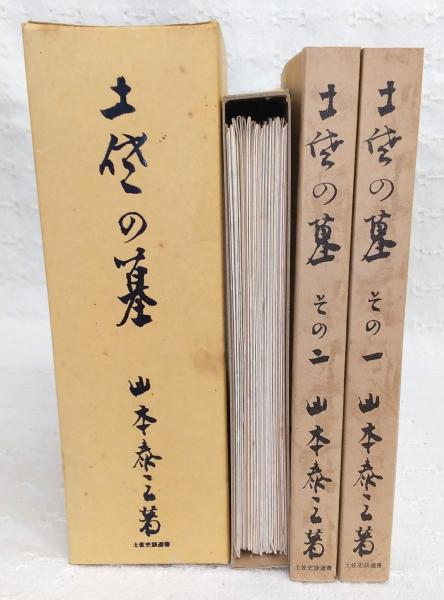 土佐の墓
山本泰三著
土佐史談選書
土佐の墓 その二 山本泰三著
土佐史談選書
土佐の墓 その一 山本泰三著
土佐史談選書